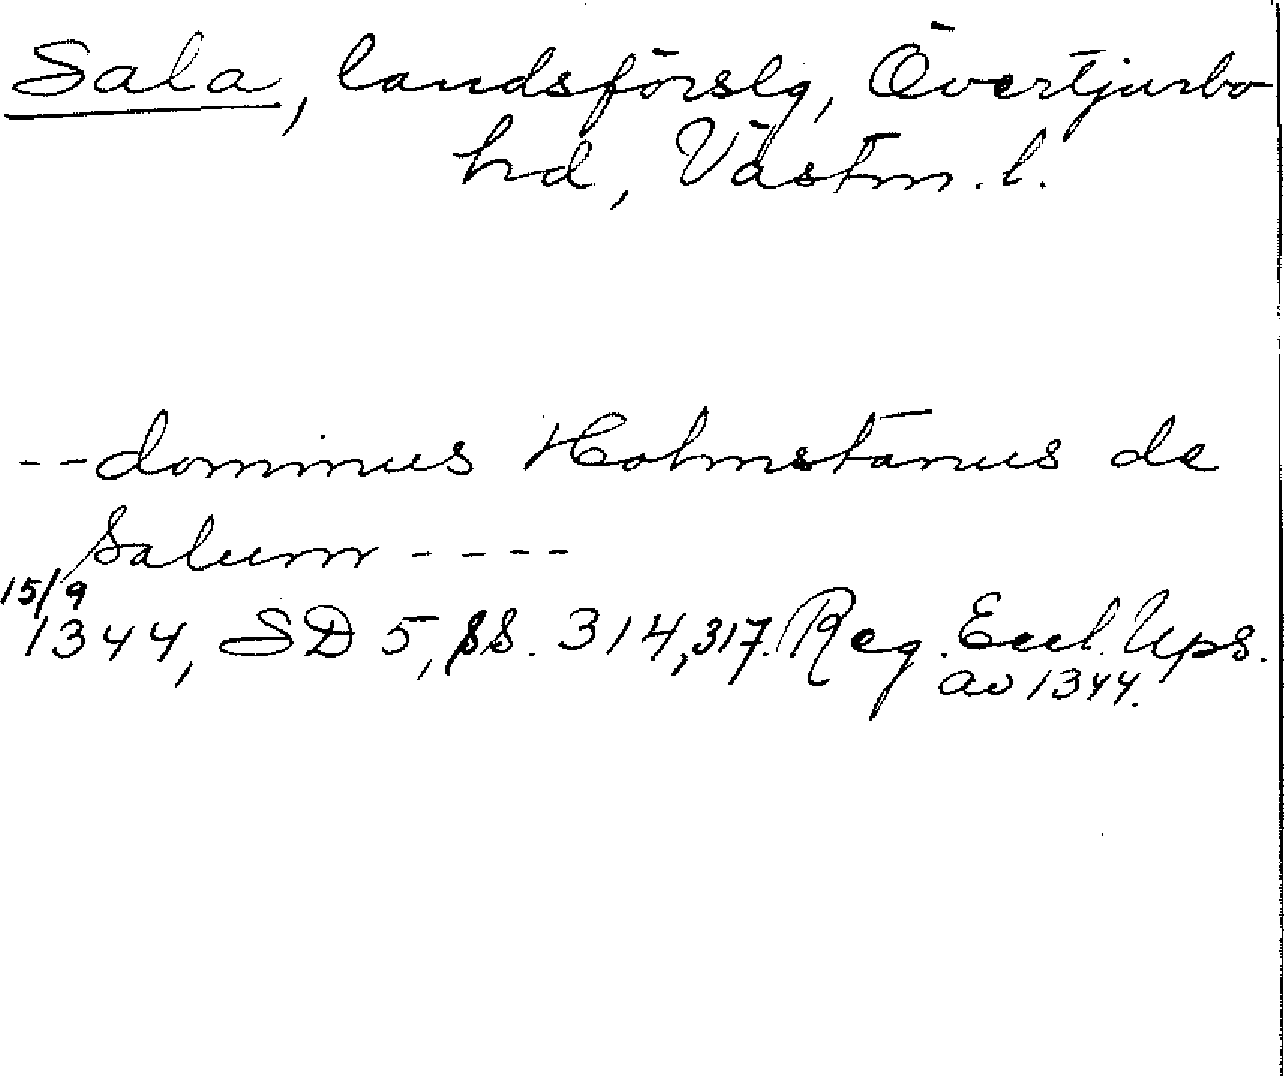 Sala, landsförslg, Övertjurbo
hd, Västm. l.
-- dominus Holmstanus de
Salum ----
15/9
1344, SD 5, ss. 314, 317. Reg. Eccl. Ups.
av 1344.